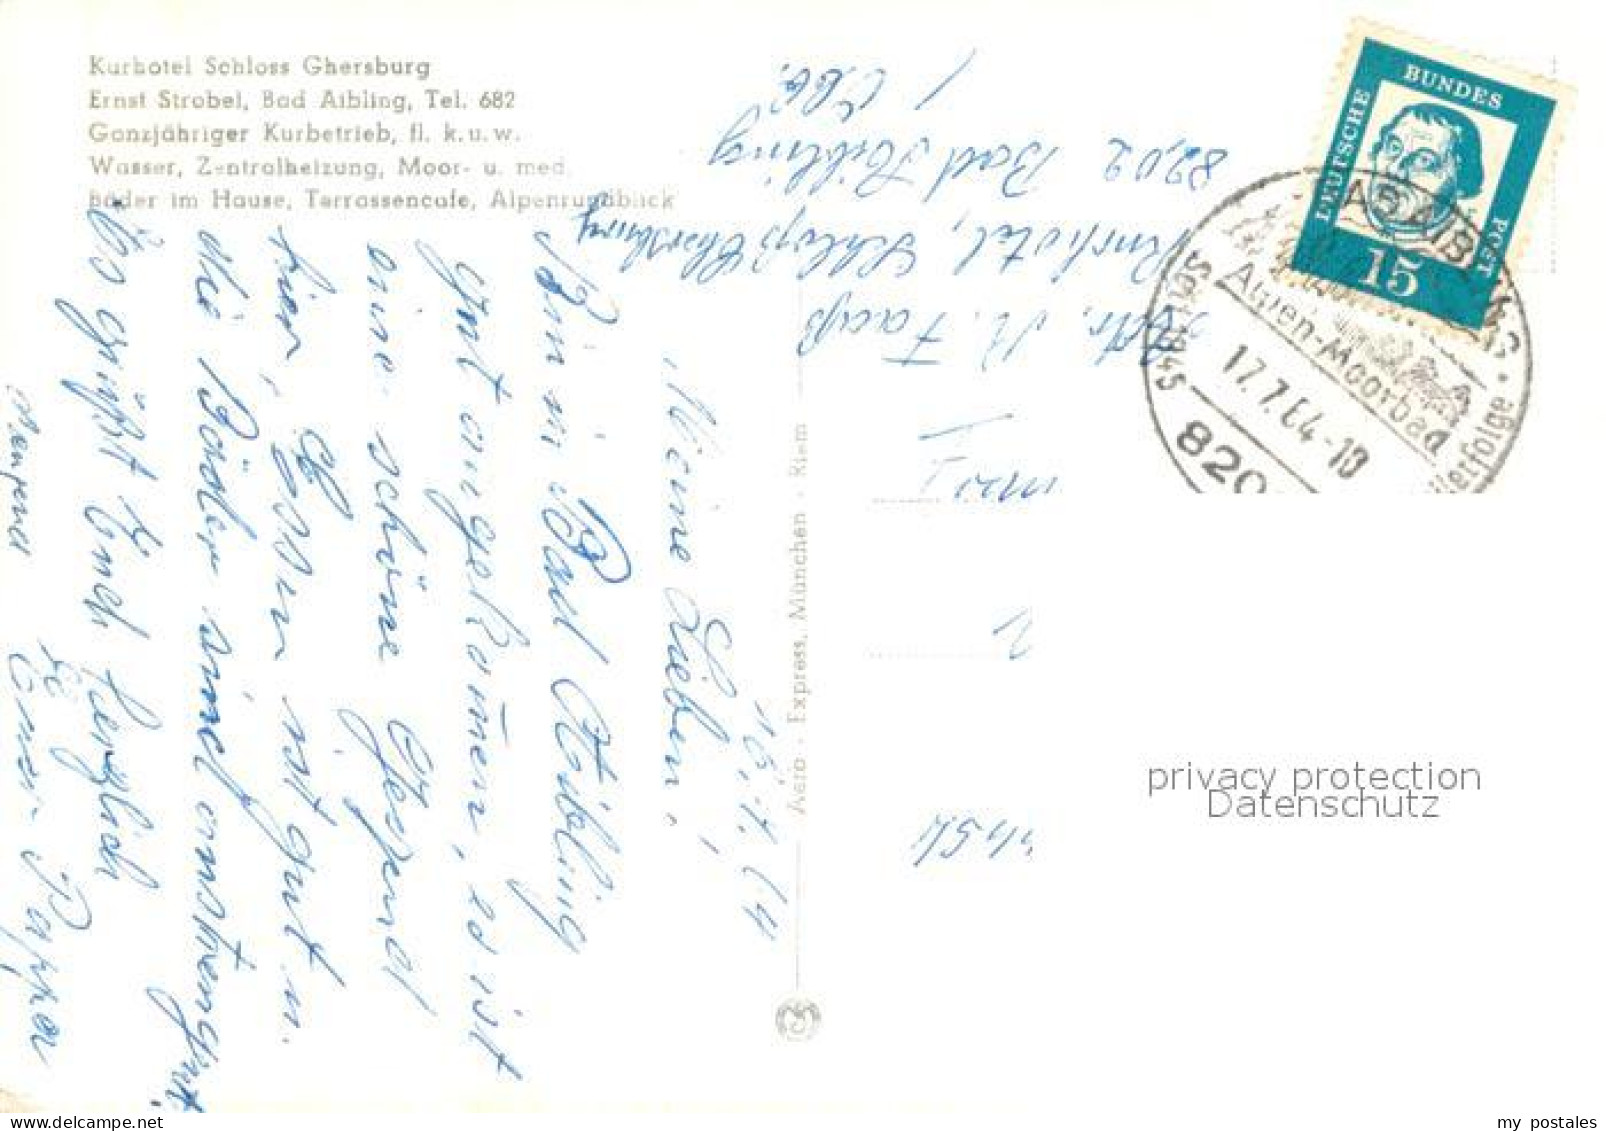 Kurhotel Schloss Ghersburg
Ernst Strobel, Bad Aibling, Tel. 682
Ganzjähriger Kurbetrieb, fl. k. u. w.
Wasser, Zentralheizung, Moor- u. med.
Bäder im Hause, Terrassencafe, Alpenrundblick
16.7.64
Meine Lieben,
Bin in Bad Aibling
gut angekom̅en, es ist
eine schöne Gegend
hier, Essen ist gut u.
die Bäder sind anstrengend.
Es grüßt Euch herzlich
Euer Pappa
Faaß
Kurhotel, Schloß Ghersburg
8202 Bad Aibling
DEUTSCHE
BUNDES
POST
15
Seit 1845
Alpen-Moorbad
17.7.64-18
820
Aero - Express, München - Riem
privacy protection
Datenschutz
my postales